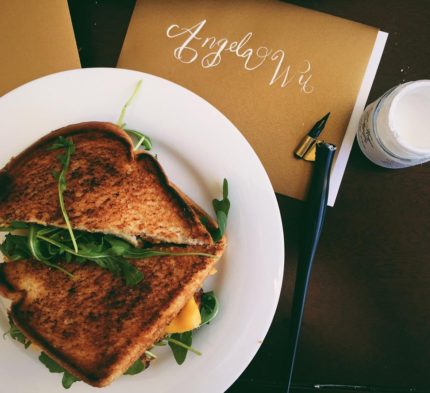 Angela Wu